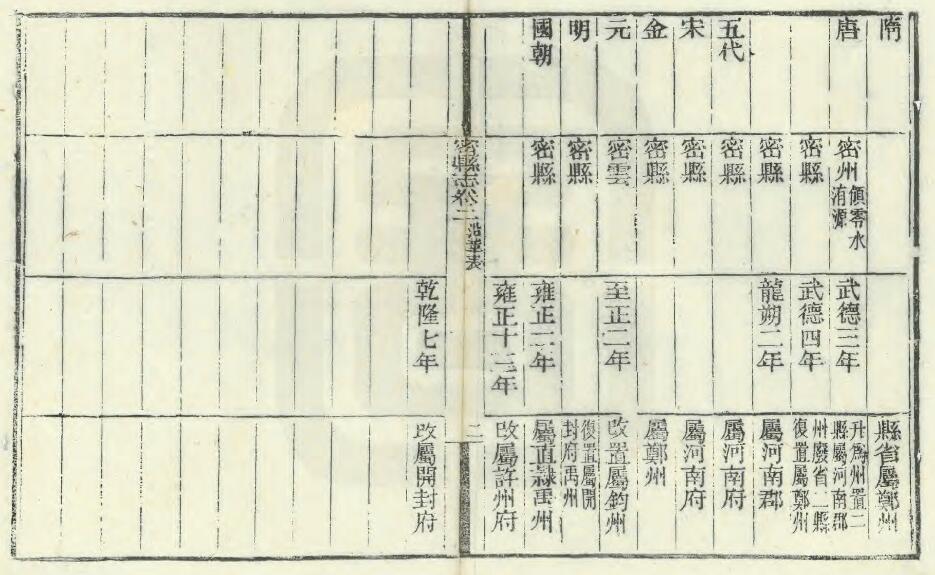 隋
縣省屬鄭州
唐
密州領零水
洧源
武德三年
升爲州置二
縣屬河南郡
密縣
武德四年
州廢省二縣
復置屬鄭州
密縣
龍朔二年
屬河南郡
五代
密縣
屬河南府
宋
密縣
屬河南府
金
密縣
屬鄭州
元
密雲
至正二年
改置屬鈞州
明
密縣
復置屬開
封府禹州
國朝
密縣
雍正二年
屬直隷禹州
雍正十二年
改屬許州府
密縣志卷二 沿革表 二
乾隆七年
改屬開封府